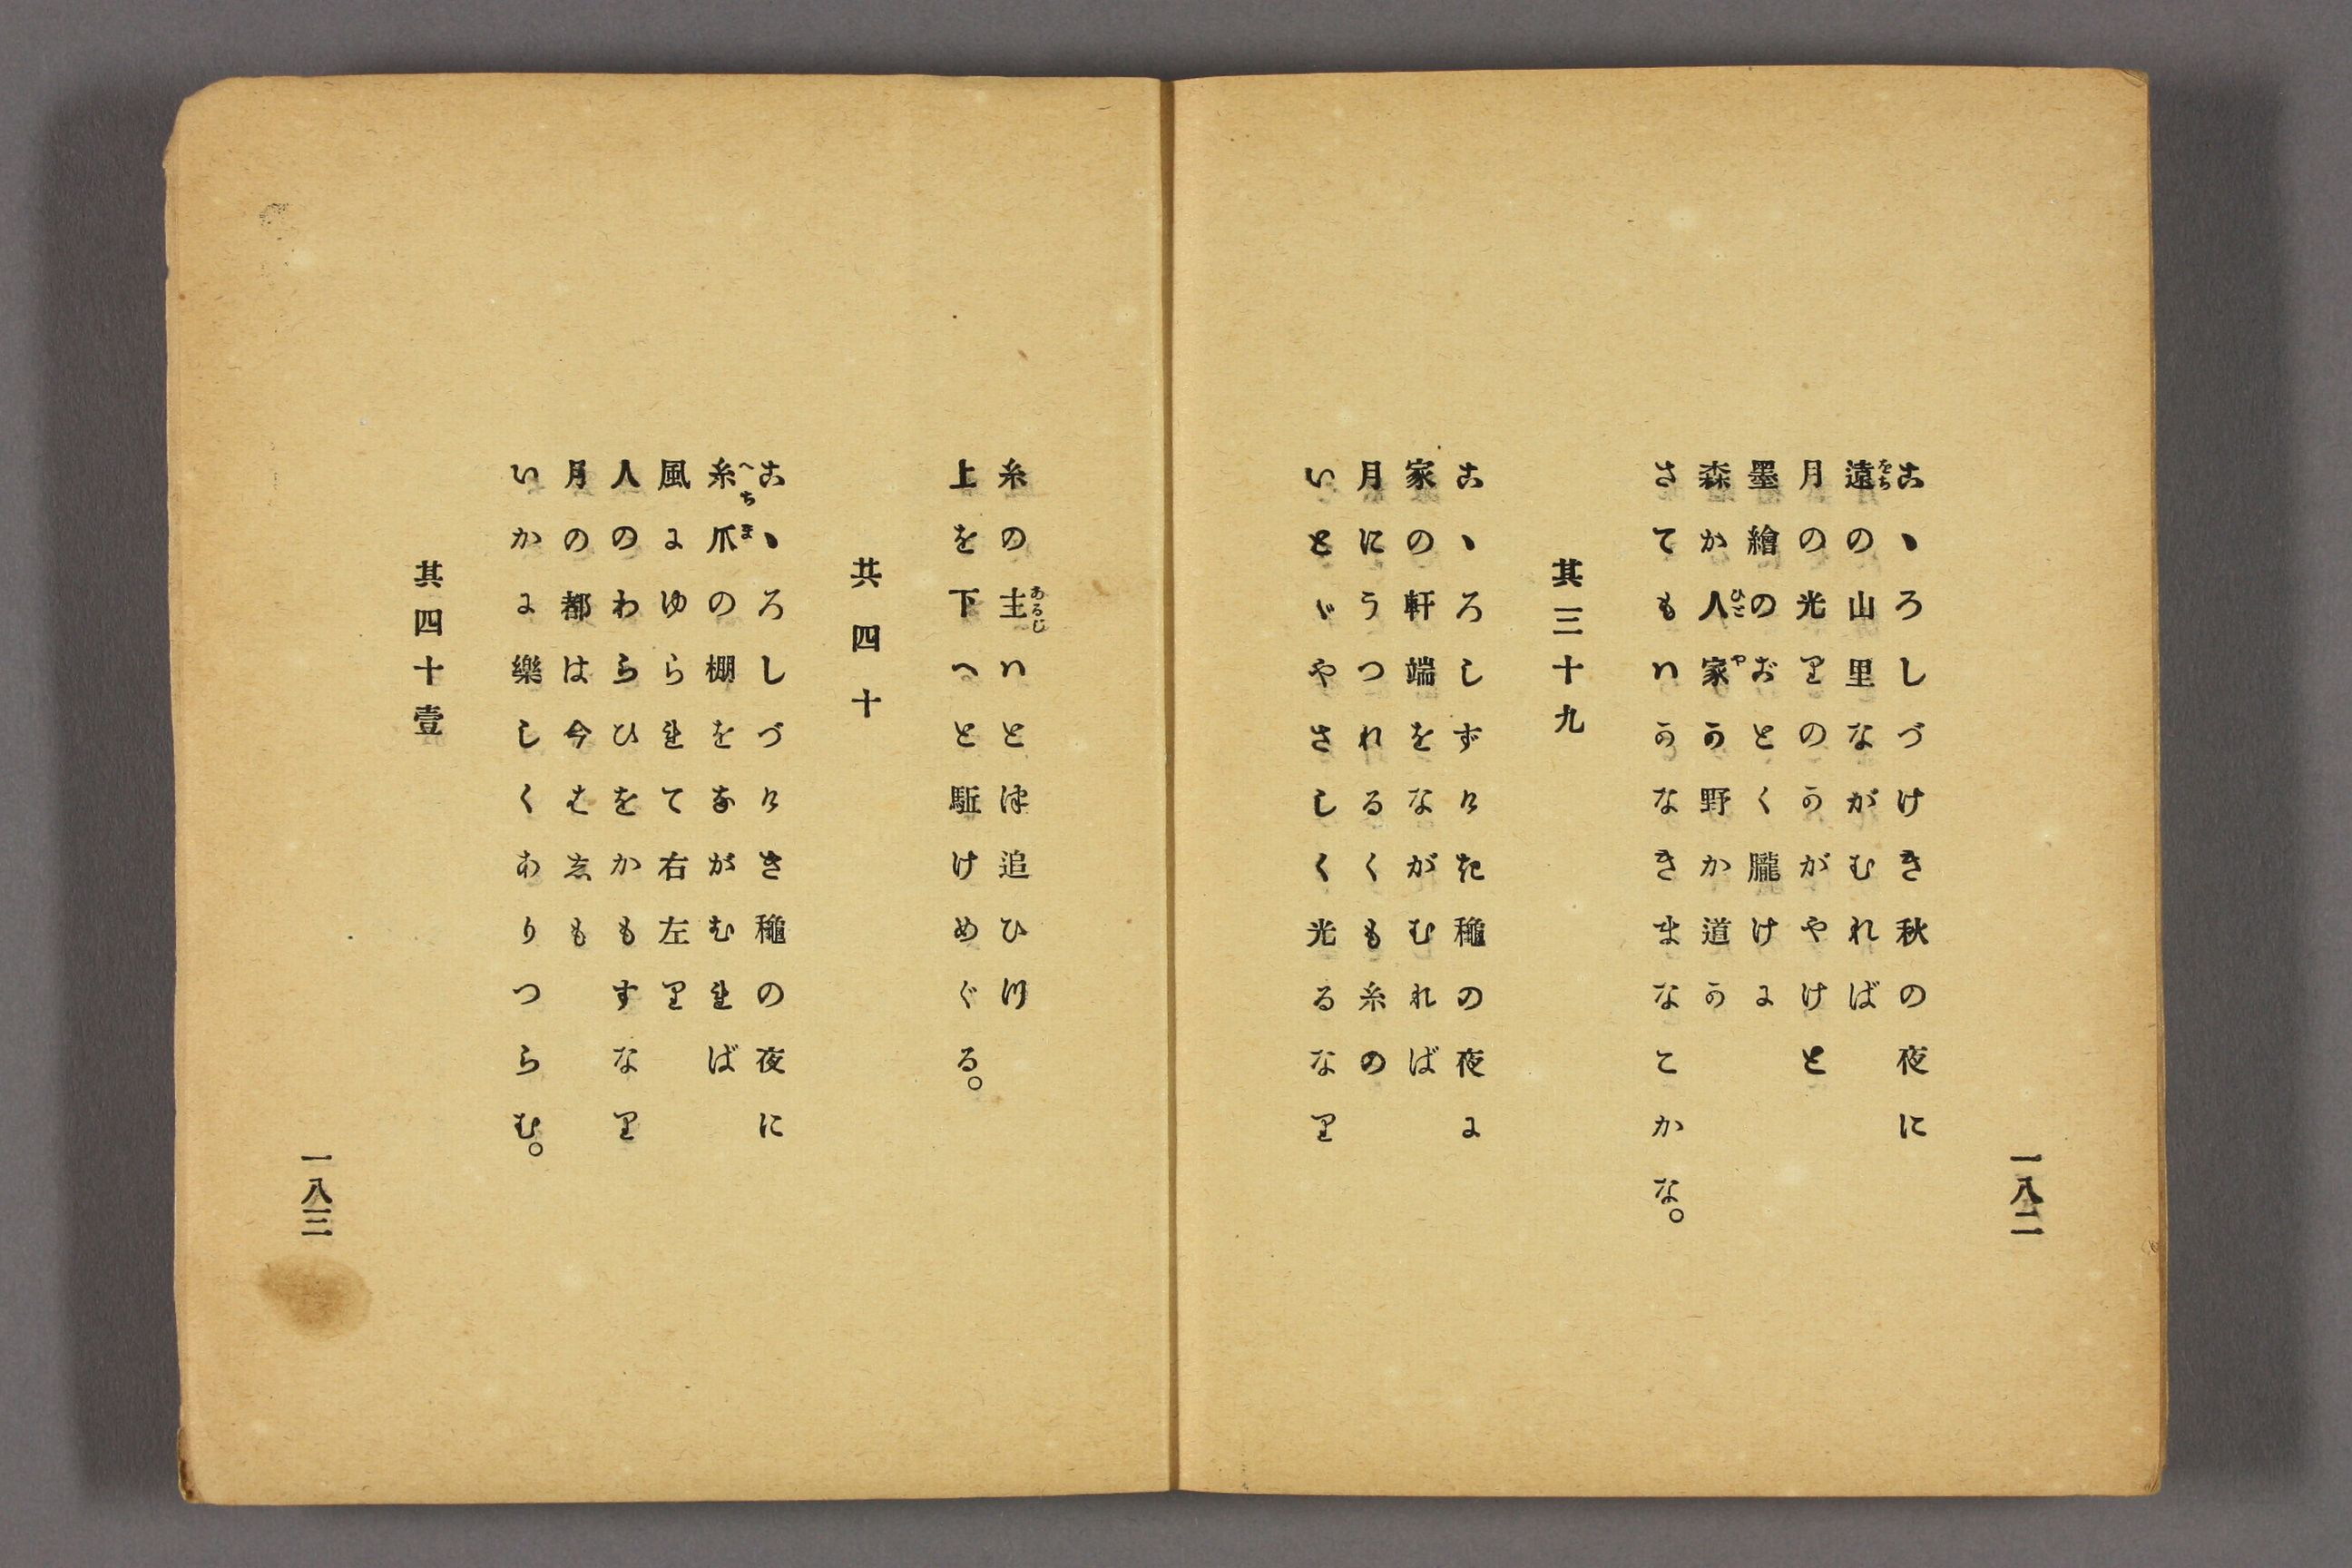 一八二
こゝろしづけき秋の夜に
遠の山里ながむれば
をち
月の光りのかがやけと
墨繪のごとく朧けに
森か人家か野か道か
ひとや
さてもはかなきまなこかな。
其三十九
こゝろしずけき龝の夜に
家の軒端をながむれば
月にうつれるくも糸の
いとゞやさしく光るなり
糸の主はとつ追ひつ
あるじ
上を下へと駈けめぐる。
其四十
こゝろしづけき龝の夜に
糸爪の棚をながむれば
へちま
風にゆられて右左り
人のわらひをかもすなり
月の都は今はしも
いかに樂しくありつらむ。
其四十壹
一八三